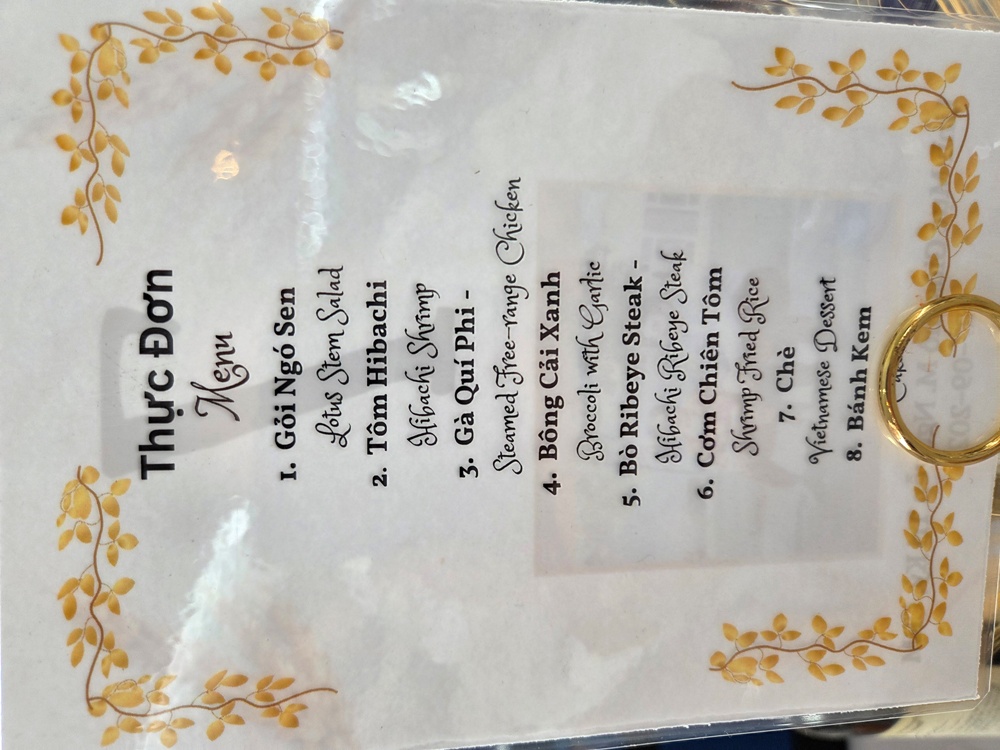 Thực Đơn
Menu
1. Gỏi Ngó Sen
Lotus Stem Salad
2. Tôm Hibachi
Hibachi Shrimp
3. Gà Quí Phi -
Steamed Free-range Chicken
4. Bông Cải Xanh
Broccoli with Garlic
5. Bò Ribeye Steak -
Hibachi Ribeye Steak
6. Cơm Chiên Tôm
Shrimp Fried Rice
7. Chè
Vietnamese Dessert
8. Bánh Kem